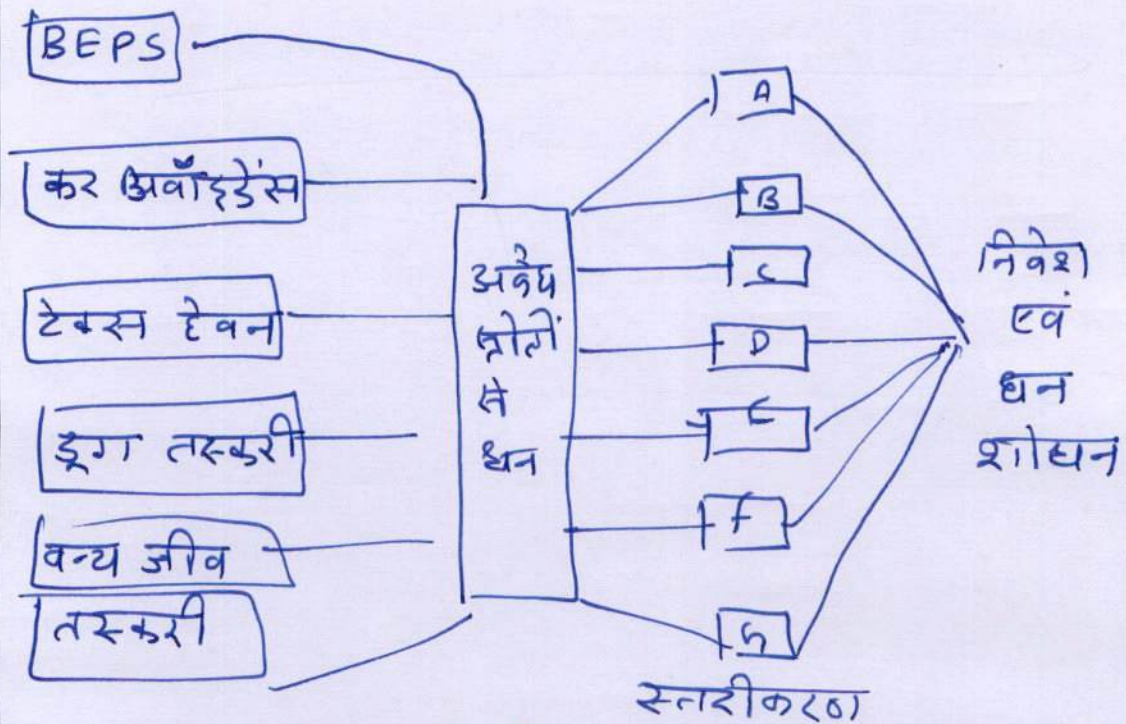 BEPS
कर अवॉइडेंस
टेक्स हेवन
ड्रग तस्करी
वन्य जीव
तस्करी
अवैध
स्रोतों
से
धन
A
B
C
D
E
F
G
स्तरीकरण
निवेश
एवं
धन
शोधन